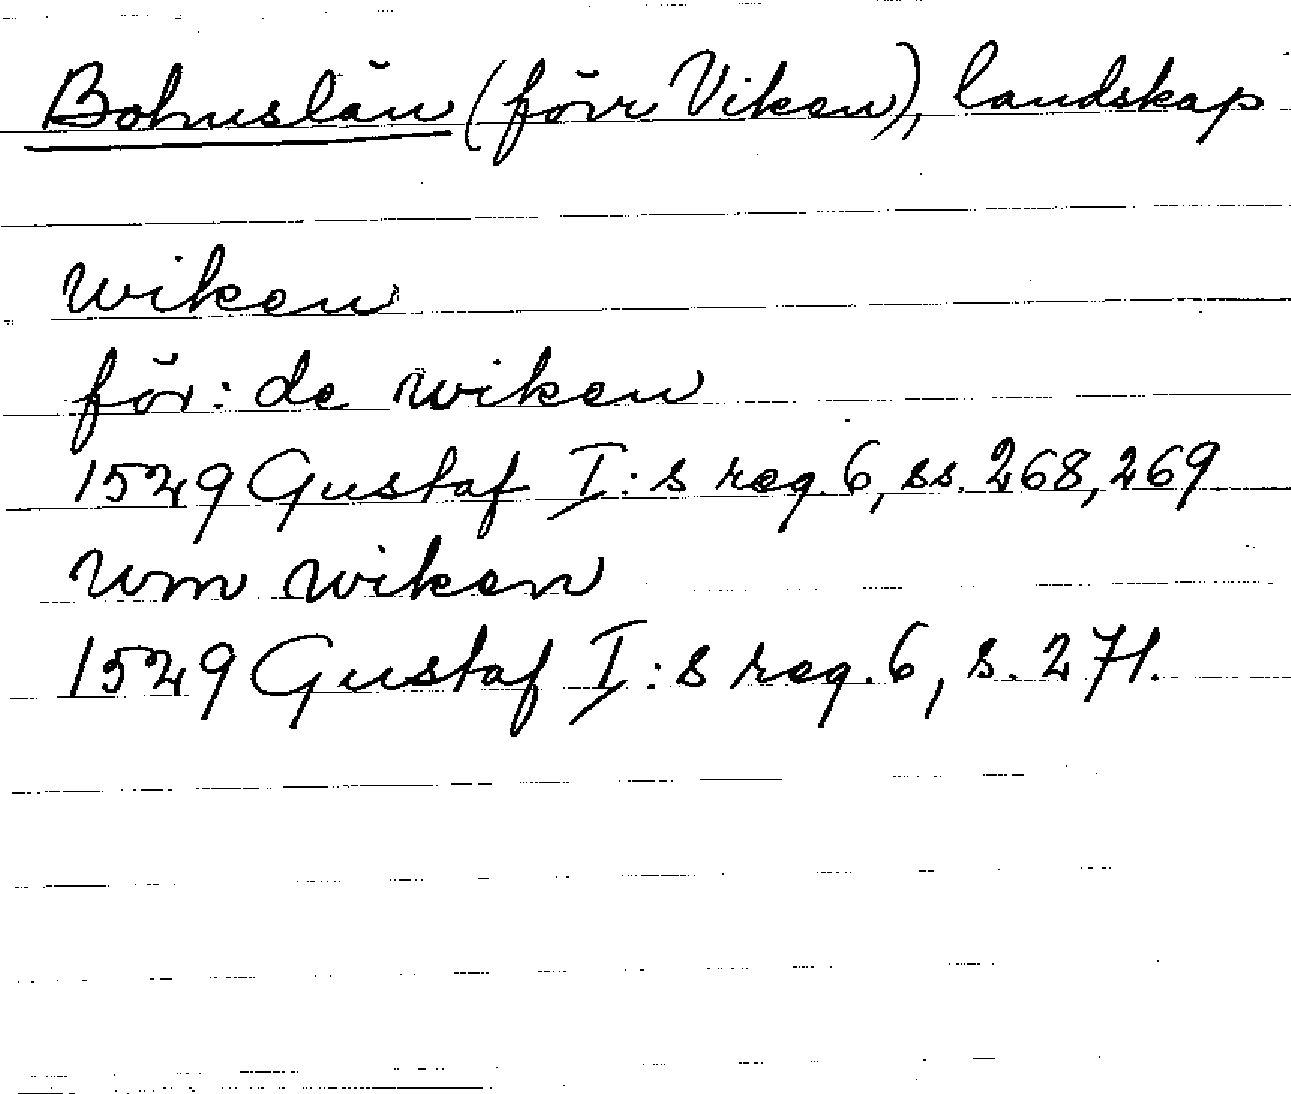 Bohuslän (förr Viken), landskap
wiken
för: de wiken
1529 Gustaf I:s reg. 6, ss. 268, 269.
wm wiken
1529 Gustaf I:s reg. 6, s. 271.